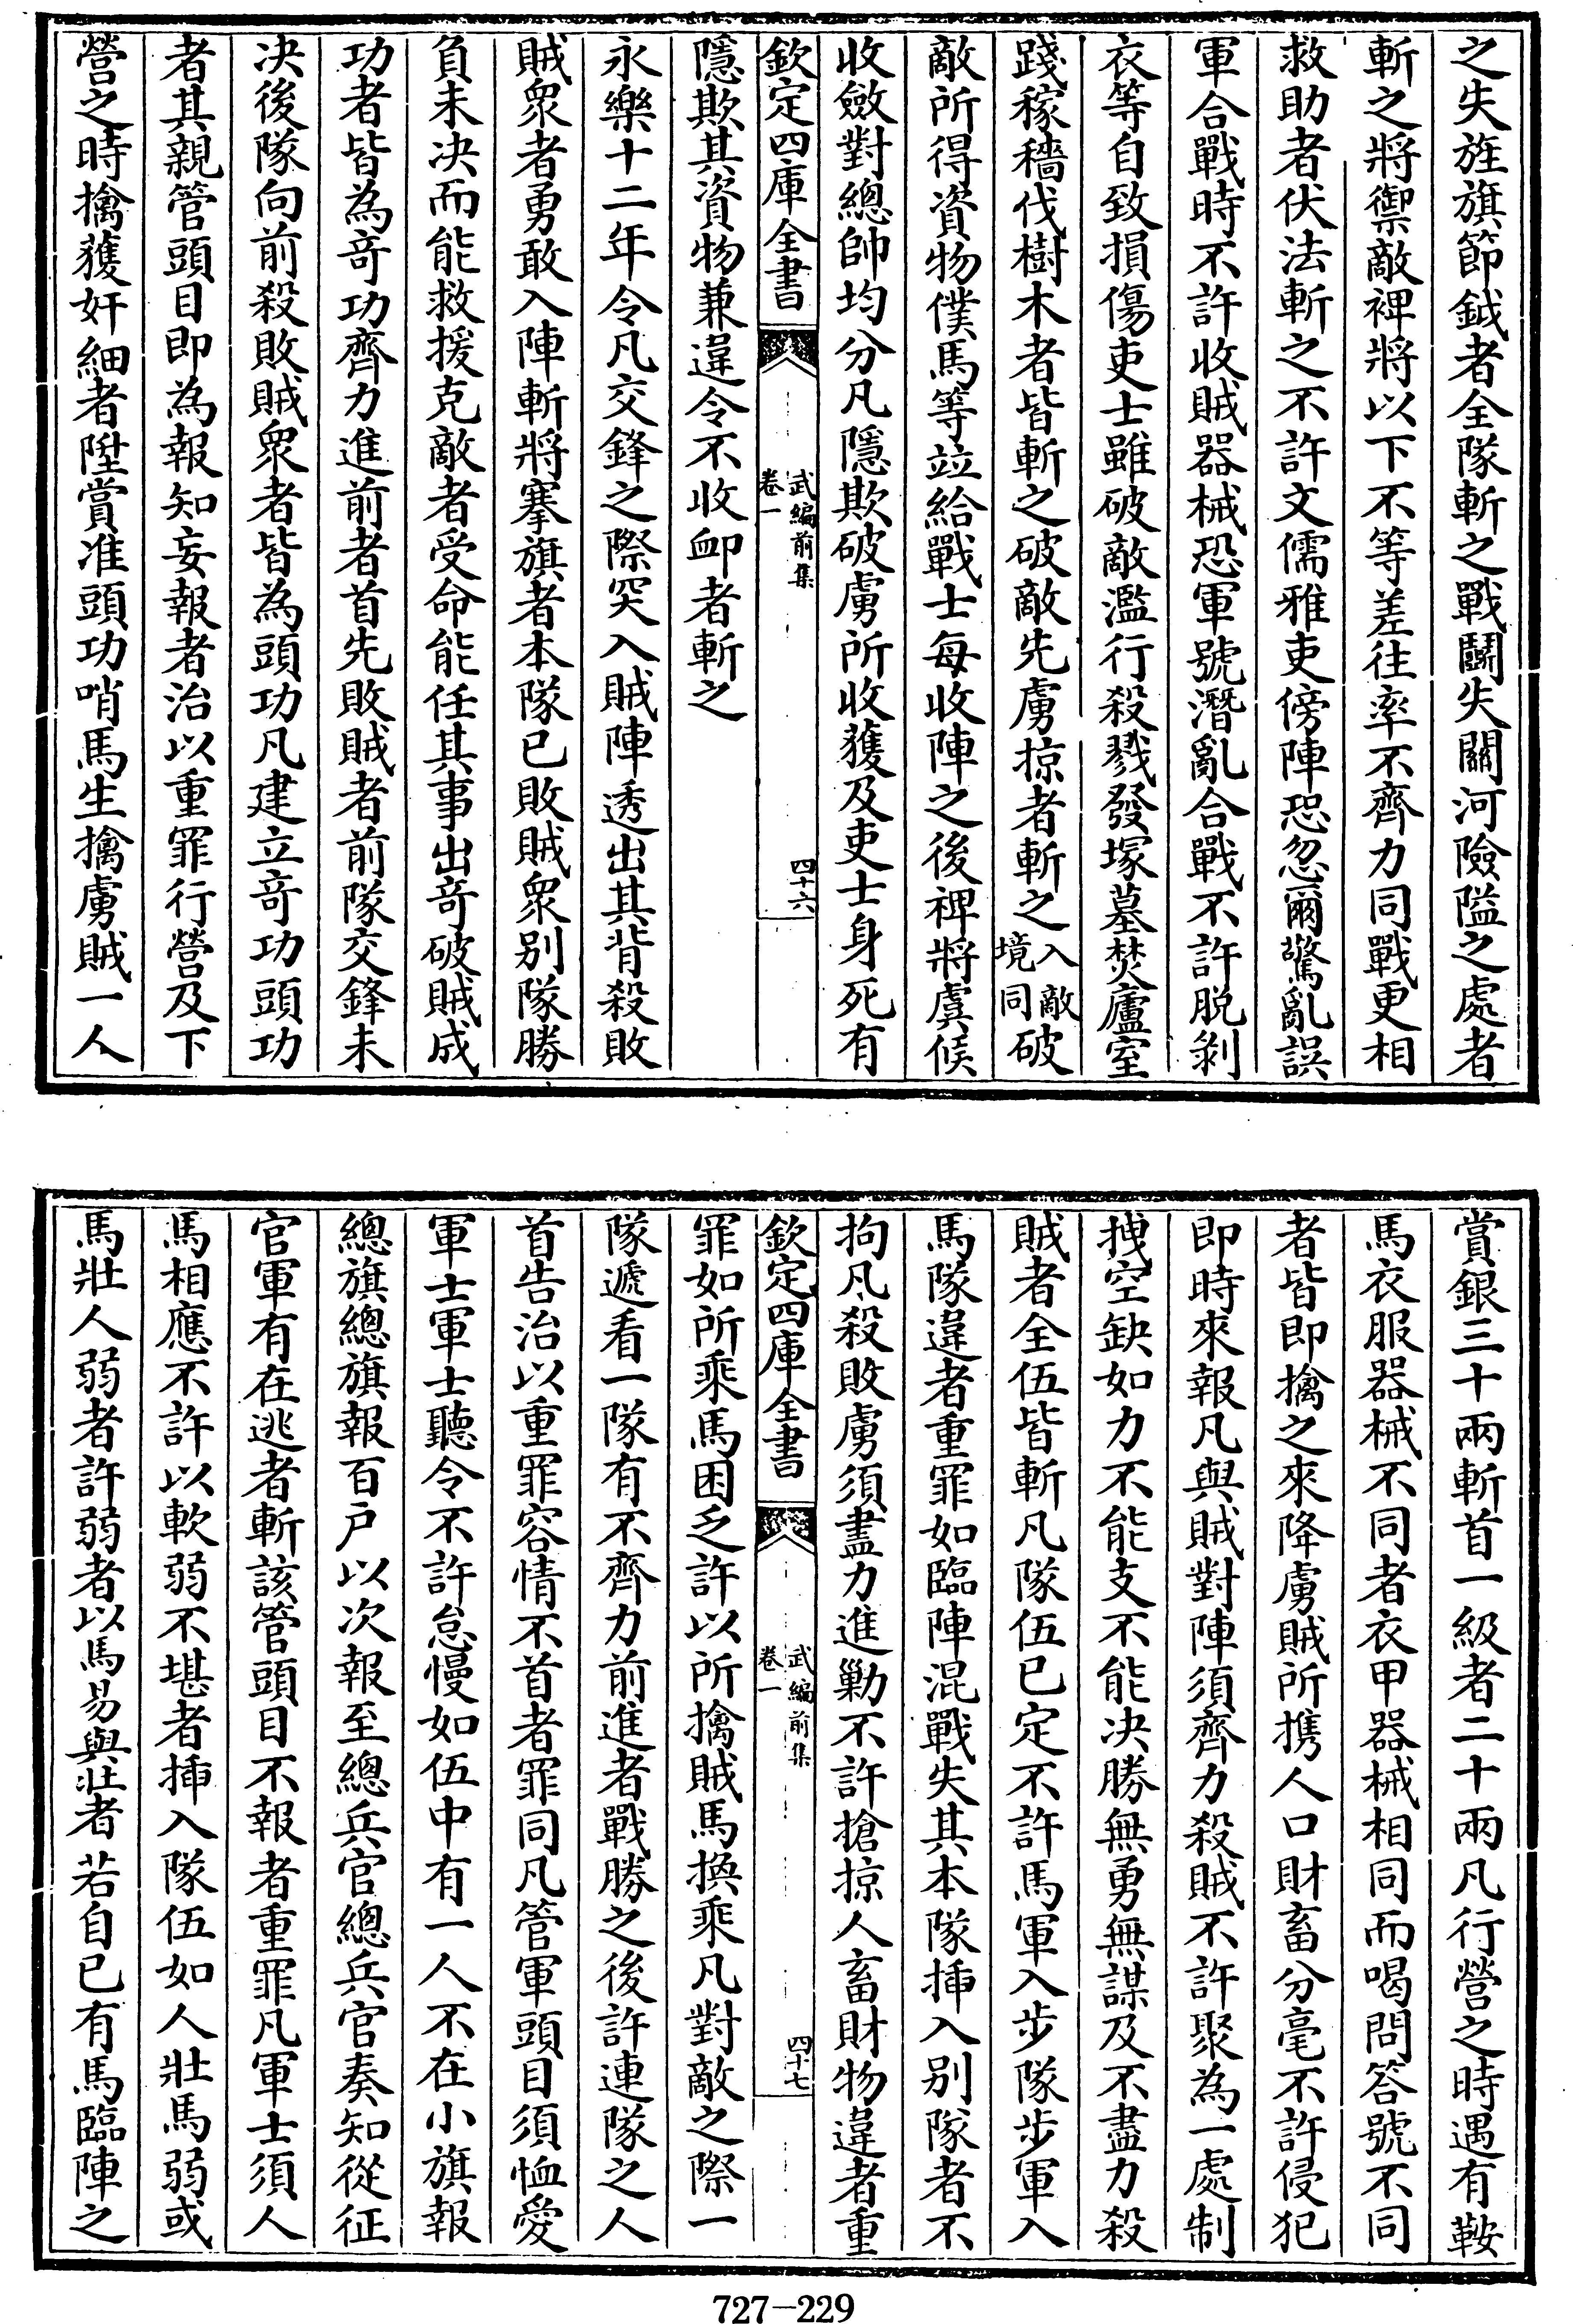 之失旌旗節鉞者全隊斬之戰鬭失關河險隘之處者
斬之將禦敵裨將以下不等差往率不齊力同戰更相
救助者伏法斬之不許文儒雅吏傍陣恐忽爾驚亂誤
軍合戰時不許收賊器械恐軍號潛亂合戰不許脱剥
衣等自致損傷吏士雖破敵濫行殺戮發塚墓焚廬室
踐稼穡伐樹木者皆斬之破敵先虜掠者斬之入敵境同破
敵所得資物僕馬等竝給戰士每收陣之後裨將虞候
收斂對總帥均分凡隱欺破虜所收獲及吏士身死有
欽定四庫全書
武編前集
卷一
四十六
隱欺其資物兼違令不收卹者斬之
永樂十二年令凡交鋒之際突入賊陣透出其背殺敗
賊衆者勇敢入陣斬將搴旗者本隊已敗賊衆别隊勝
負未決而能救援克敵者受命能任其事出竒破賊成
功者皆為竒功齊力進前者首先敗賊者前隊交鋒未
決後隊向前殺敗賊衆者皆為頭功凡建立竒功頭功
者其親管頭目即為報知妄報者治以重罪行營及下
營之時擒獲奸細者陞賞准頭功哨馬生擒虜賊一人
賞銀三十兩斬首一級者二十兩凡行營之時遇有鞍
馬衣服器械不同者衣甲器械相同而喝問答號不同
者皆即擒之來降虜賊所携人口財畜分毫不許侵犯
即時來報凡與賊對陣須齊力殺賊不許聚為一處制
拽空缺如力不能支不能决勝無勇無謀及不盡力殺
賊者全伍皆斬凡隊伍已定不許馬軍入步隊步軍入
馬隊違者重罪如臨陣混戰失其本隊挿入别隊者不
拘凡殺敗虜須盡力進勦不許搶掠人畜財物違者重
欽定四庫全書
武編前集
卷一
四十七
罪如所乘馬困乏許以所擒賊馬換乘凡對敵之際一
隊遞看一隊有不齊力前進者戰勝之後許連隊之人
首告治以重罪容情不首者罪同凡管軍頭目須恤愛
軍士軍士聽令不許怠慢如伍中有一人不在小旗報
總旗總旗報百户以次報至總兵官總兵官奏知從征
官軍有在逃者斬該管頭目不報者重罪凡軍士須人
馬相應不許以軟弱不堪者挿入隊伍如人壯馬弱或
馬壯人弱者許弱者以馬易與壯者若自已有馬臨陣之
727—229